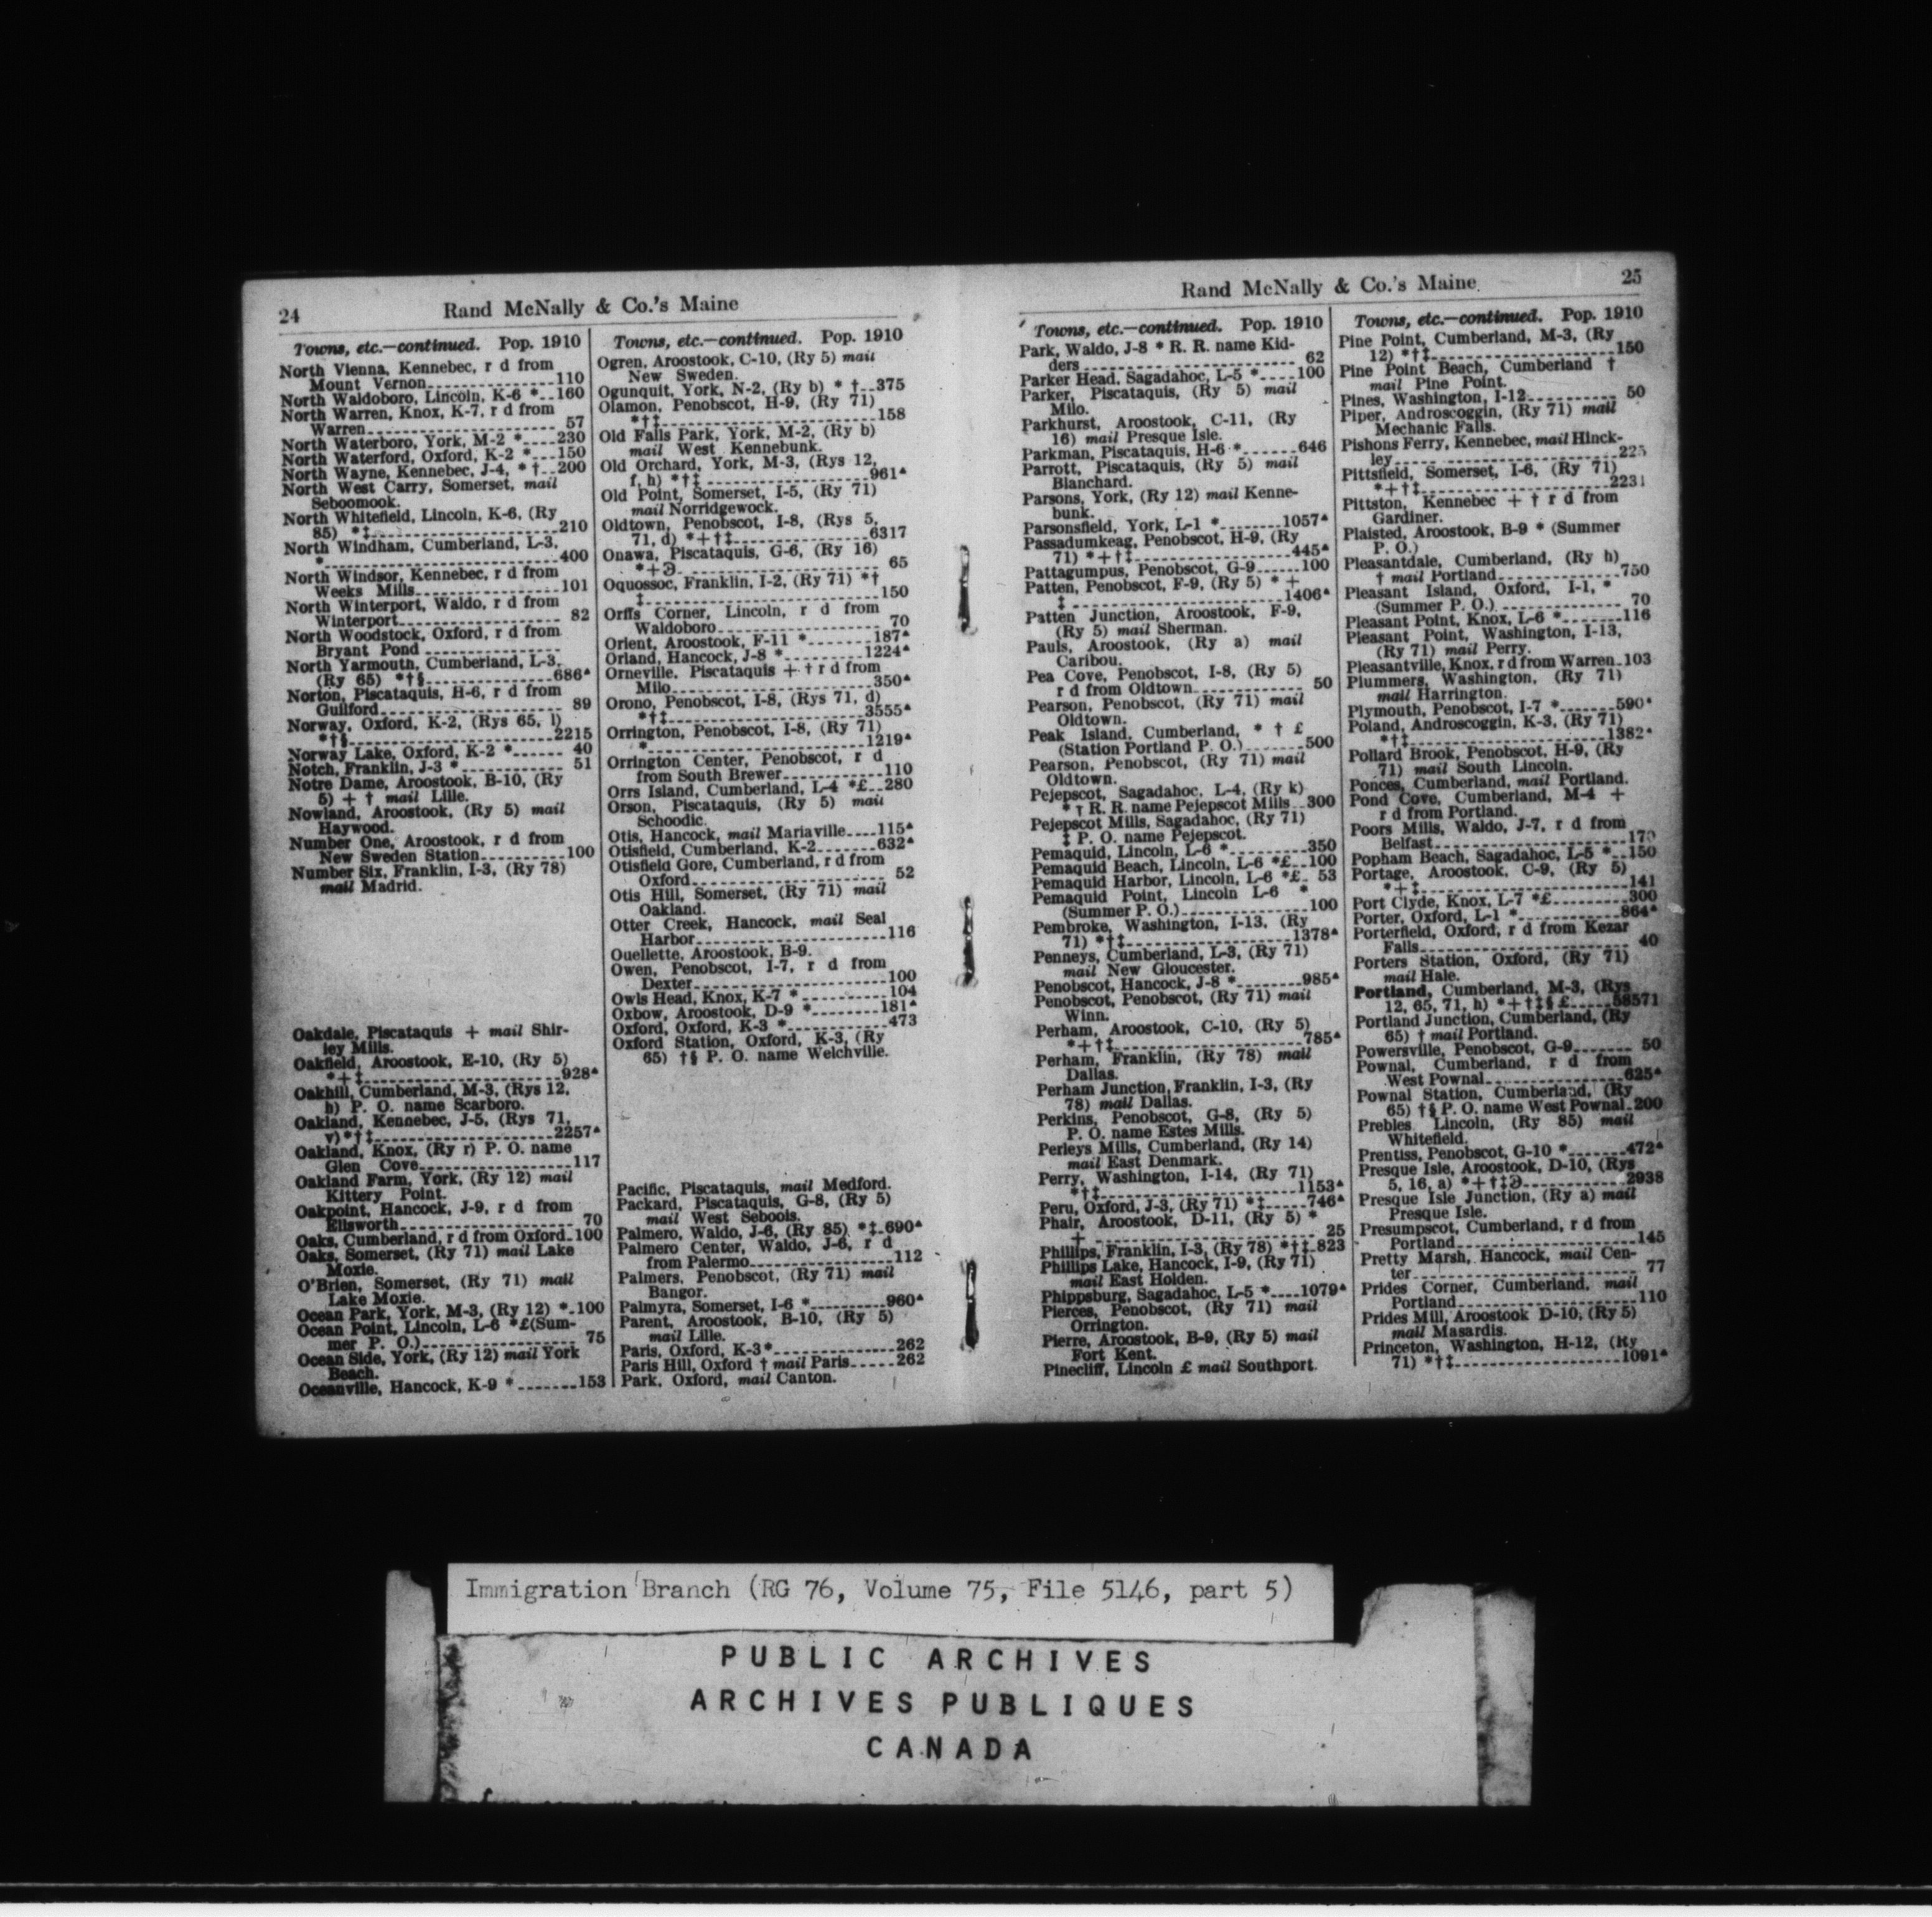 24
Rand McNally & Co.'s Maine
Towns, etc.—continued. Pop. 1910
North Vienna, Kennebec, r d from
Mount Vernon 110
North Waldoboro, Lincoln, K-6 * 160
North Warren, Knox, K-7, r d from
Warren 57
North Waterboro, York, M-2 * 230
North Waterford, Oxford, K-2 * 150
North Wayne, Kennebec, J-4, * † 200
North West Carry, Somerset, mail
Seboomook.
North Whitefield, Lincoln, K-6, (Ry
85) *‡ 210
North Windham, Cumberland, L-3,
* 400
North Windsor, Kennebec, r d from
Weeks Mills 101
North Winterport, Waldo, r d from
Winterport 82
North Woodstock, Oxford, r d from
Bryant Pond
North Yarmouth, Cumberland, L-3,
(Ry 65) *†§ 686▲
Norton, Piscataquis, H-6, r d from
Guilford 89
Norway, Oxford, K-2, (Rys 65, l)
*†§ 2215
Norway Lake, Oxford, K-2 * 40
Notch, Franklin, J-3 * 51
Notre Dame, Aroostook, B-10, (Ry
5) + † mail Lille.
Nowland, Aroostook, (Ry 5) mail
Haywood.
Number One, Aroostook, r d from
New Sweden Station 100
Number Six, Franklin, I-3, (Ry 78)
mail Madrid.
Oakdale, Piscataquis + mail Shir-
ley Mills.
Oakfield, Aroostook, E-10, (Ry 5)
*+‡ 928▲
Oakhill, Cumberland, M-3, (Rys 12,
h) P. O. name Scarboro.
Oakland, Kennebec, J-5, (Rys 71,
v) *†‡ 2257▲
Oakland, Knox, (Ry r) P. O. name
Glen Cove 117
Oakland Farm, York, (Ry 12) mail
Kittery Point.
Oakpoint, Hancock, J-9, r d from
Ellsworth 70
Oaks, Cumberland, r d from Oxford 100
Oaks, Somerset, (Ry 71) mail Lake
Moxie.
O'Brien, Somerset, (Ry 71) mail
Lake Moxie.
Ocean Park, York, M-3, (Ry 12) * 100
Ocean Point, Lincoln, L-6 *£(Sum-
mer P. O.) 75
Ocean Side, York, (Ry 12) mail York
Beach.
Oceanville, Hancock, K-9 * 153
Towns, etc.—continued. Pop. 1910
Ogren, Aroostook, C-10, (Ry 5) mail
New Sweden.
Ogunquit, York, N-2, (Ry b) * † 375
Olamon, Penobscot, H-9, (Ry 71)
*†‡ 158
Old Falls Park, York, M-2, (Ry b)
mail West Kennebunk.
Old Orchard, York, M-3, (Rys 12,
f, h) *†‡ 961▲
Old Point, Somerset, I-5, (Ry 71)
mail Norridgewock.
Oldtown, Penobscot, I-8, (Rys 5,
71, d) *+†‡ 6317
Onawa, Piscataquis, G-6, (Ry 16)
*+Ə 65
Oquossoc, Franklin, I-2, (Ry 71) *†
‡ 150
Orffs Corner, Lincoln, r d from
Waldoboro 70
Orient, Aroostook, F-11 * 187▲
Orland, Hancock, J-8 * 1224▲
Orneville, Piscataquis + † r d from
Milo 350▲
Orono, Penobscot, I-8, (Rys 71, d)
*†‡ 3555▲
Orrington, Penobscot, I-8, (Ry 71)
* 1219▲
Orrington Center, Penobscot, r d
from South Brewer 110
Orrs Island, Cumberland, L-4 *£ 280
Orson, Piscataquis, (Ry 5) mail
Schoodic.
Otis, Hancock, mail Mariaville 115▲
Otisfield, Cumberland, K-2 632▲
Otisfield Gore, Cumberland, r d from
Oxford 52
Otis Hill, Somerset, (Ry 71) mail
Oakland.
Otter Creek, Hancock, mail Seal
Harbor 116
Ouellette, Aroostook, B-9.
Owen, Penobscot, I-7, r d from
Dexter 100
Owls Head, Knox, K-7 * 104
Oxbow, Aroostook, D-9 * 181▲
Oxford, Oxford, K-3 * 473
Oxford Station, Oxford, K-3, (Ry
65) †§ P. O. name Welchville.
Pacific, Piscataquis, mail Medford.
Packard, Piscataquis, G-8, (Ry 5)
mail West Sebois.
Palmero, Waldo, J-6, (Ry 85) *‡ 690▲
Palmero Center, Waldo, J-6, r d
from Palermo 112
Palmers, Penobscot, (Ry 71) mail
Bangor.
Palmyra, Somerset, I-6 * 960▲
Parent, Aroostook, B-10, (Ry 5)
mail Lille.
Paris, Oxford, K-3* 262
Paris Hill, Oxford † mail Paris 262
Park, Oxford, mail Canton.
Rand McNally & Co.'s Maine
25
Towns, etc.—continued. Pop. 1910
Park, Waldo, J-8 * R. R. name Kid-
ders 62
Parker Head, Sagadahoc, L-5 * 100
Parker, Piscataquis, (Ry 5) mail
Milo.
Parkhurst, Aroostook, C-11, (Ry
16) mail Presque Isle.
Parkman, Piscataquis, H-6 * 646
Parrott, Piscataquis, (Ry 5) mail
Blanchard.
Parsons, York, (Ry 12) mail Kenne-
bunk.
Parsonsfield, York, L-1 * 1057▲
Passadumkeag, Penobscot, H-9, (Ry
71) *+†‡ 445▲
Pattagumpus, Penobscot, G-9 100
Patten, Penobscot, F-9, (Ry 5) * +
‡ 1406▲
Patten Junction, Aroostook, F-9,
(Ry 5) mail Sherman.
Pauls, Aroostook, (Ry a) mail
Caribou.
Pea Cove, Penobscot, I-8, (Ry 5)
r d from Oldtown 50
Pearson, Penobscot, (Ry 71) mail
Oldtown.
Peak Island, Cumberland, * † £
(Station Portland P. O.) 500
Pearson, Penobscot, (Ry 71) mail
Oldtown.
Pejepscot, Sagadahoc, L-4, (Ry k)
*† R. R. name Pejepscot Mills 300
Pejepscot Mills, Sagadahoc, (Ry 71)
‡ P. O. name Pejepscot.
Pemaquid, Lincoln, L-6 * 350
Pemaquid Beach, Lincoln, L-6 *£ 100
Pemaquid Harbor, Lincoln, L-6 *£ 53
Pemaquid Point, Lincoln L-6 *
(Summer P. O.) 100
Pembroke, Washington, I-13, (Ry
71) *†‡ 1378▲
Penneys, Cumberland, L-3, (Ry 71)
mail New Gloucester.
Penobscot, Hancock, J-8 * 985▲
Penobscot, Penobscot, (Ry 71) mail
Winn.
Perham, Aroostook, C-10, (Ry 5)
*+†‡ 785▲
Perham, Franklin, (Ry 78) mail
Dallas.
Perham Junction, Franklin, I-3, (Ry
78) mail Dallas.
Perkins, Penobscot, G-8, (Ry 5)
P. O. name Estes Mills.
Perleys Mills, Cumberland, (Ry 14)
mail East Denmark.
Perry, Washington, I-14, (Ry 71)
*†‡ 1153▲
Peru, Oxford, J-3, (Ry 71) *‡ 746▲
Phair, Aroostook, D-11, (Ry 5) *
+ 25
Phillips, Franklin, I-3, (Ry 78) *†‡ 823
Phillips Lake, Hancock, I-9, (Ry 71)
mail East Holden.
Phippsburg, Sagadahoc, L-5 * 1079▲
Pierces, Penobscot, (Ry 71) mail
Orrington.
Pierre, Aroostook, B-9, (Ry 5) mail
Fort Kent.
Pinecliff, Lincoln £ mail Southport.
Towns, etc.—continued. Pop. 1910
Pine Point, Cumberland, M-3, (Ry
12) *†‡ 150
Pine Point Beach, Cumberland †
mail Pine Point.
Pines, Washington, I-12 50
Piper, Androscoggin, (Ry 71) mail
Mechanic Falls.
Pishons Ferry, Kennebec, mail Hinck-
ley 225
Pittsfield, Somerset, I-6, (Ry 71)
*+†‡ 2231
Pittston, Kennebec + † r d from
Gardiner.
Plaisted, Aroostook, B-9 * (Summer
P. O.)
Pleasantdale, Cumberland, (Ry h)
† mail Portland 750
Pleasant Island, Oxford, I-1, *
(Summer P. O.) 70
Pleasant Point, Knox, L-6 * 116
Pleasant Point, Washington, I-13,
(Ry 71) mail Perry.
Pleasantville, Knox, r d from Warren 103
Plummers, Washington, (Ry 71)
mail Harrington.
Plymouth, Penobscot, I-7 * 590▲
Poland, Androscoggin, K-3, (Ry 71)
*†‡ 1382▲
Pollard Brook, Penobscot, H-9, (Ry
71) mail South Lincoln.
Ponces, Cumberland, mail Portland.
Pond Cove, Cumberland, M-4 +
r d from Portland.
Poors Mills, Waldo, J-7, r d from
Belfast
Popham Beach, Sagadahoc, L-5 * 150
Portage, Aroostook, C-9, (Ry 5)
*+‡ 141
Port Clyde, Knox, L-7 *£ 300
Porter, Oxford, L-1 * 864▲
Porterfield, Oxford, r d from Kezar
Falls 40
Porters Station, Oxford, (Ry 71)
mail Hale.
Portland, Cumberland, M-3, (Rys
12, 65, 71, h) *+†‡§£ 58571
Portland Junction, Cumberland, (Ry
65) † mail Portland.
Powersville, Penobscot, G-9 50
Pownal, Cumberland, r d from
West Pownal 625▲
Pownal Station, Cumberland, (Ry
65) †§ P. O. name West Pownal 200
Prebles Lincoln, (Ry 85) mail
Whitefield.
Prentiss, Penobscot, G-10 * 472▲
Presque Isle, Aroostook, D-10, (Rys
5, 16, a) *+†‡Ə 2938
Presque Isle Junction, (Ry a) mail
Presque Isle.
Presumpscot, Cumberland, r d from
Portland 145
Pretty Marsh, Hancock, mail Cen-
ter 77
Prides Corner, Cumberland, mail
Portland 110
Prides Mill, Aroostook D-10, (Ry 5)
mail Masardis.
Princeton, Washington, H-12, (Ry
71) *†‡ 1091▲
Immigration Branch (RG 76, Volume 75, File 5146, part 5)
PUBLIC ARCHIVES
ARCHIVES PUBLIQUES
CANADA